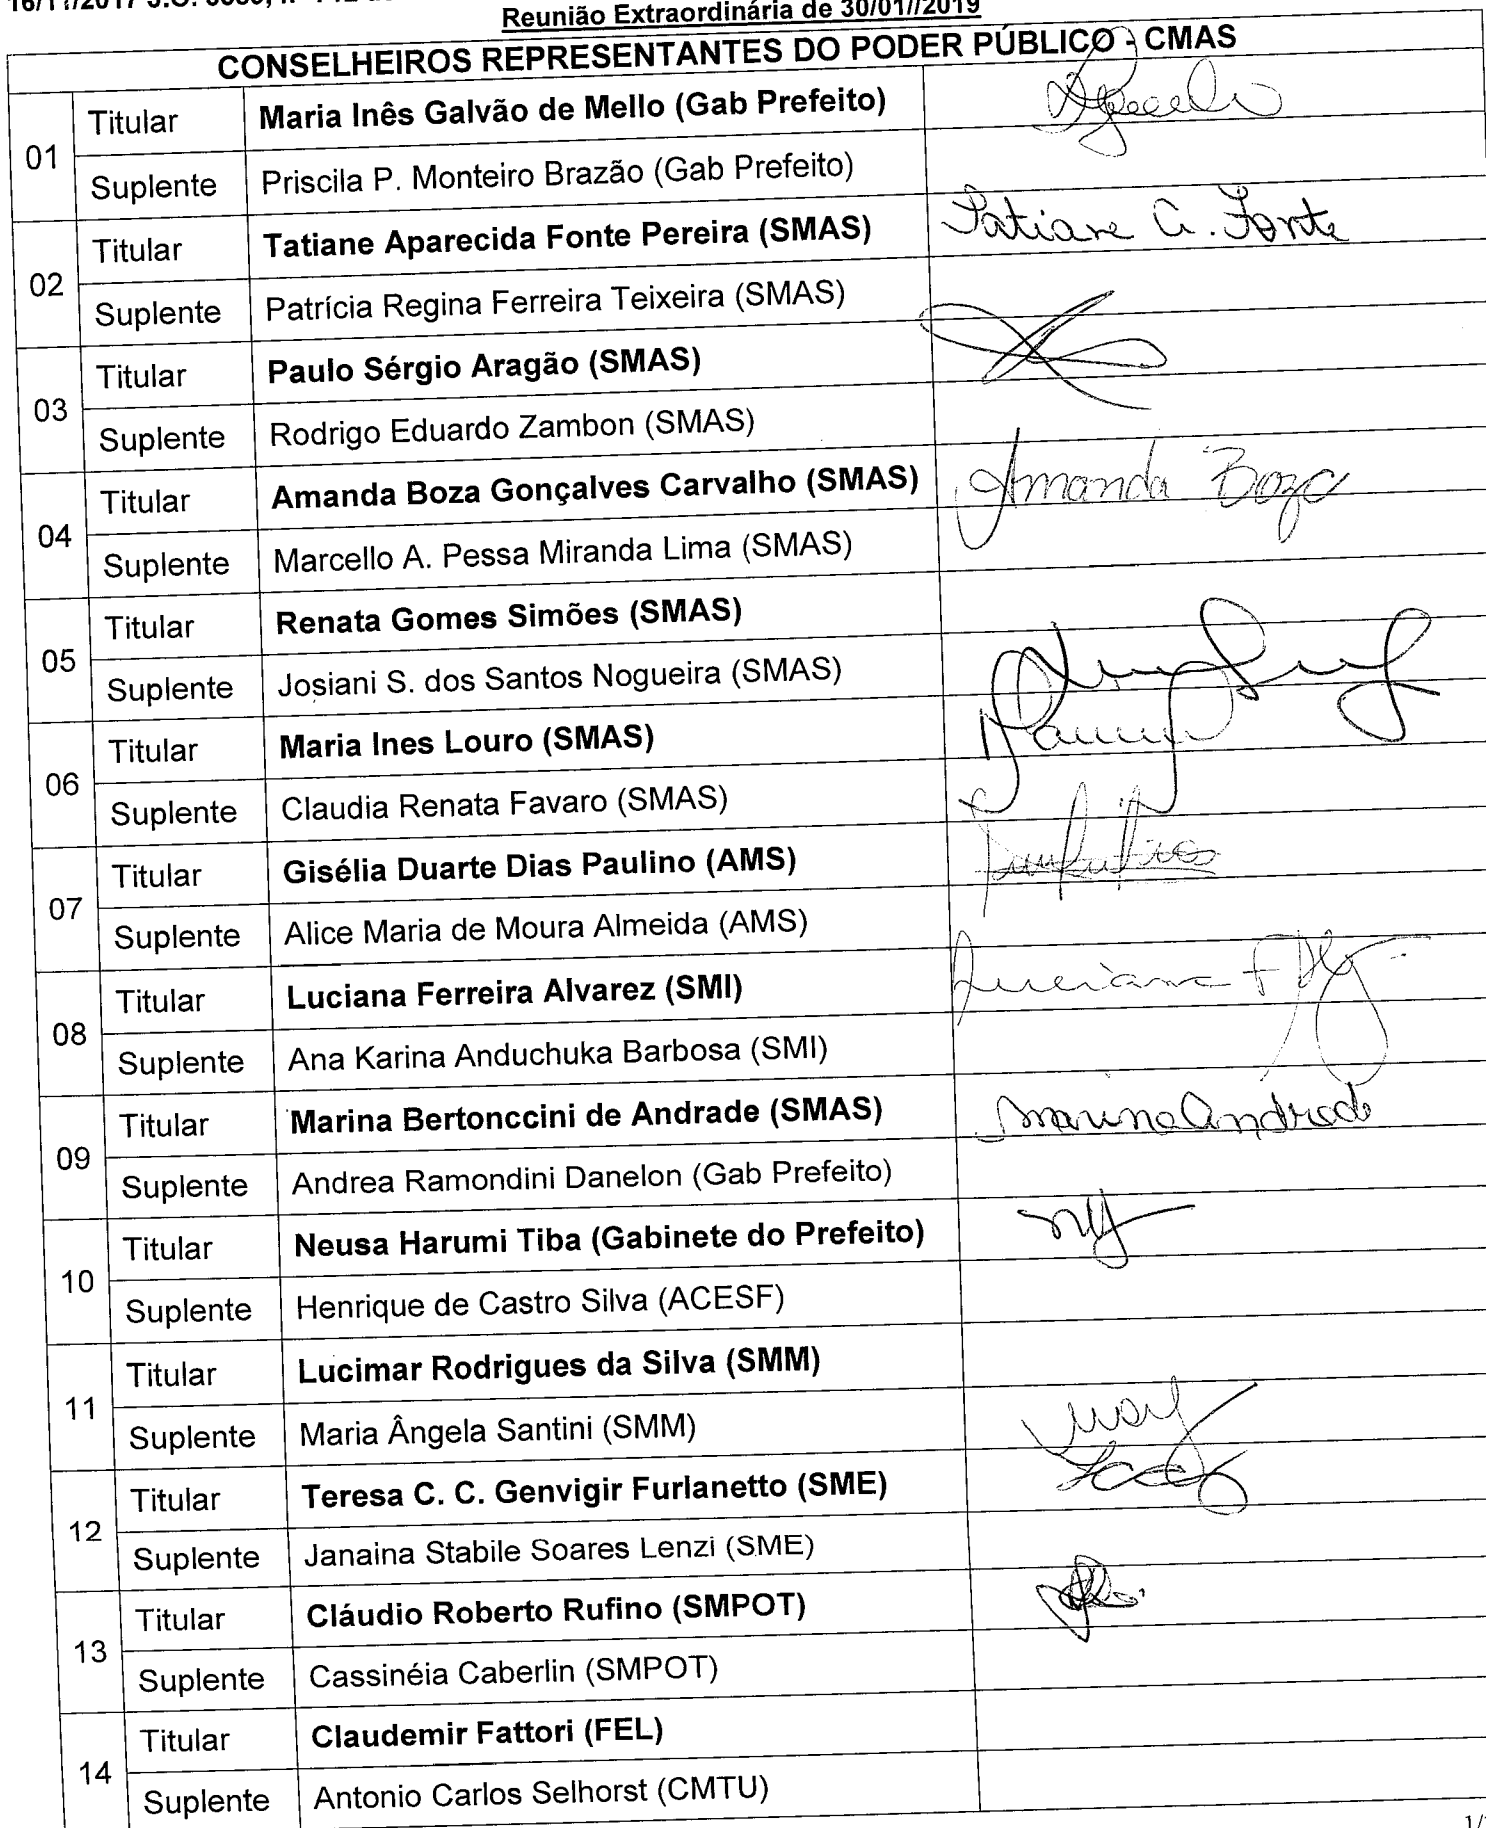 16/11/2017 J.O.
Reunião Extraordinária de 30/01//2019
CONSELHEIROS REPRESENTANTES DO PODER PÚBLICO - CMAS
01 Titular Maria Inês Galvão de Mello (Gab Prefeito)
Suplente Priscila P. Monteiro Brazão (Gab Prefeito)
02 Titular Tatiane Aparecida Fonte Pereira (SMAS) Tatiane A. Fonte
Suplente Patrícia Regina Ferreira Teixeira (SMAS)
03 Titular Paulo Sérgio Aragão (SMAS)
Suplente Rodrigo Eduardo Zambon (SMAS)
04 Titular Amanda Boza Gonçalves Carvalho (SMAS) Amanda Boza
Suplente Marcello A. Pessa Miranda Lima (SMAS)
05 Titular Renata Gomes Simões (SMAS)
Suplente Josiani S. dos Santos Nogueira (SMAS)
06 Titular Maria Ines Louro (SMAS)
Suplente Claudia Renata Favaro (SMAS)
07 Titular Gisélia Duarte Dias Paulino (AMS)
Suplente Alice Maria de Moura Almeida (AMS)
08 Titular Luciana Ferreira Alvarez (SMI) Luciana F
Suplente Ana Karina Anduchuka Barbosa (SMI)
09 Titular Marina Bertonccini de Andrade (SMAS) Marina Andrade
Suplente Andrea Ramondini Danelon (Gab Prefeito)
10 Titular Neusa Harumi Tiba (Gabinete do Prefeito)
Suplente Henrique de Castro Silva (ACESF)
11 Titular Lucimar Rodrigues da Silva (SMM)
Suplente Maria Ângela Santini (SMM)
12 Titular Teresa C. C. Genvigir Furlanetto (SME)
Suplente Janaina Stabile Soares Lenzi (SME)
13 Titular Cláudio Roberto Rufino (SMPOT)
Suplente Cassinéia Caberlin (SMPOT)
14 Titular Claudemir Fattori (FEL)
Suplente Antonio Carlos Selhorst (CMTU)